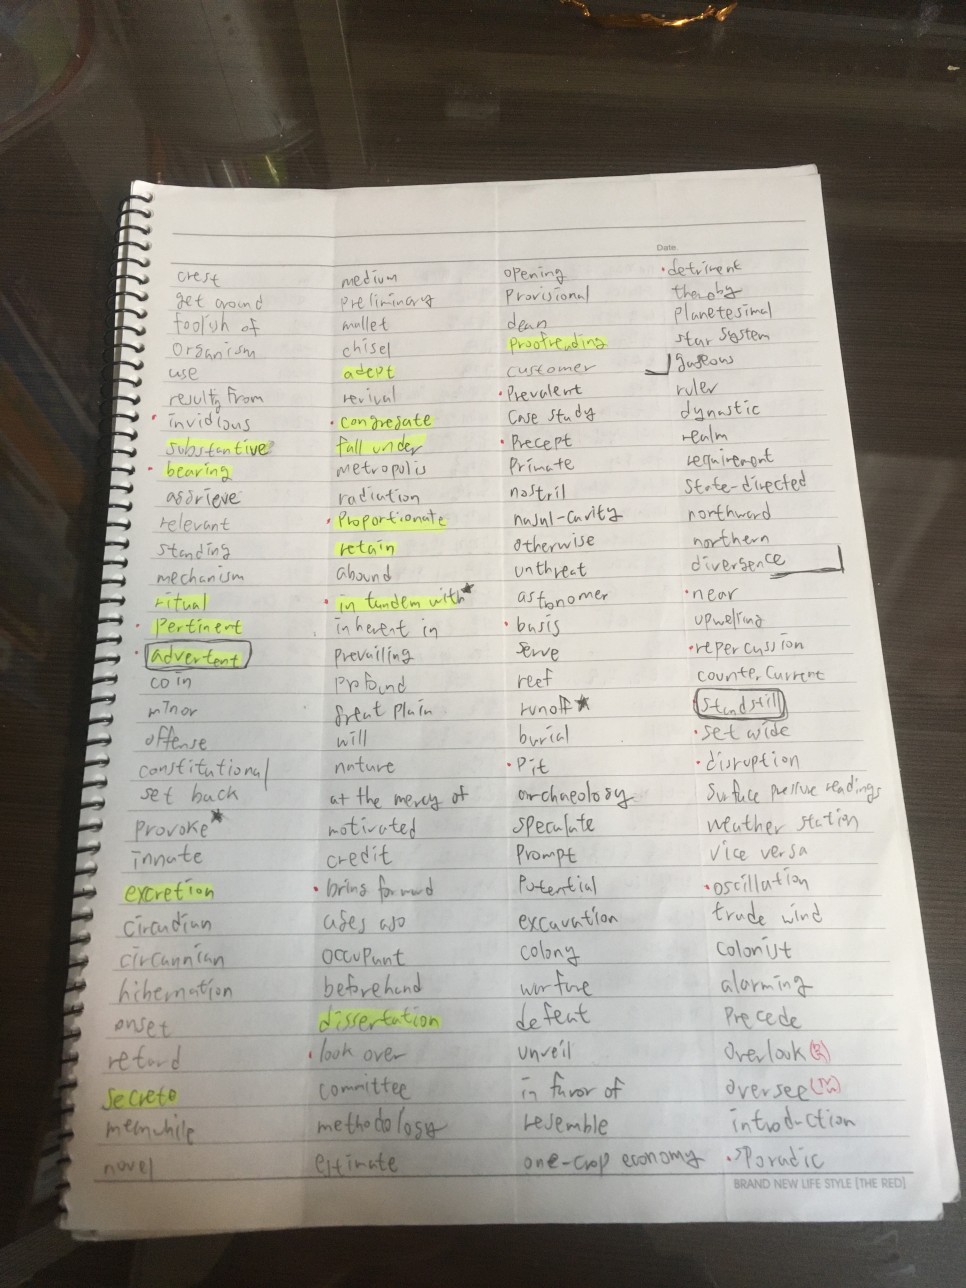 Date.
crest
get around
foolish of
organism
use
results from
invidious
substantive
bearing
aggrieve
relevant
standing
mechanism
ritual
pertinent
advertent
coin
minor
offense
constitutional
set back
provoke*
innate
excretion
circadian
circannian
hibernation
onset
retard
secrete
meanwhile
novel
medium
preliminary
mallet
chisel
adept
revival
congregate
fall under
metropolis
radiation
proportionate
retain
abound
in tandem with*
inherent in
prevailing
profound
great plain
will
nature
at the mercy of
motivated
credit
bring forward
ages ago
occupant
beforehand
dissertation
look over
committee
methodology
estimate
opening
provisional
dean
proofreading
customer
prevalent
case study
precept
primate
nostril
nasal-cavity
otherwise
unthreat
astronomer
basis
serve
reef
runoff*
burial
pit
archaeology
speculate
prompt
potential
excavation
colony
warfare
defeat
unveil
in favor of
resemble
one-crop economy
detriment
thereby
planetesimal
star system
gaseous
ruler
dynastic
realm
requirement
state-directed
northward
northern
divergence
near
upwelling
repercussion
countercurrent
standstill
set wide
disruption
surface pressure readings
weather station
vice versa
oscillation
trade wind
colonist
alarming
precede
overlook
oversee
introduction
sporadic
BRAND NEW LIFE STYLE [THE RED]